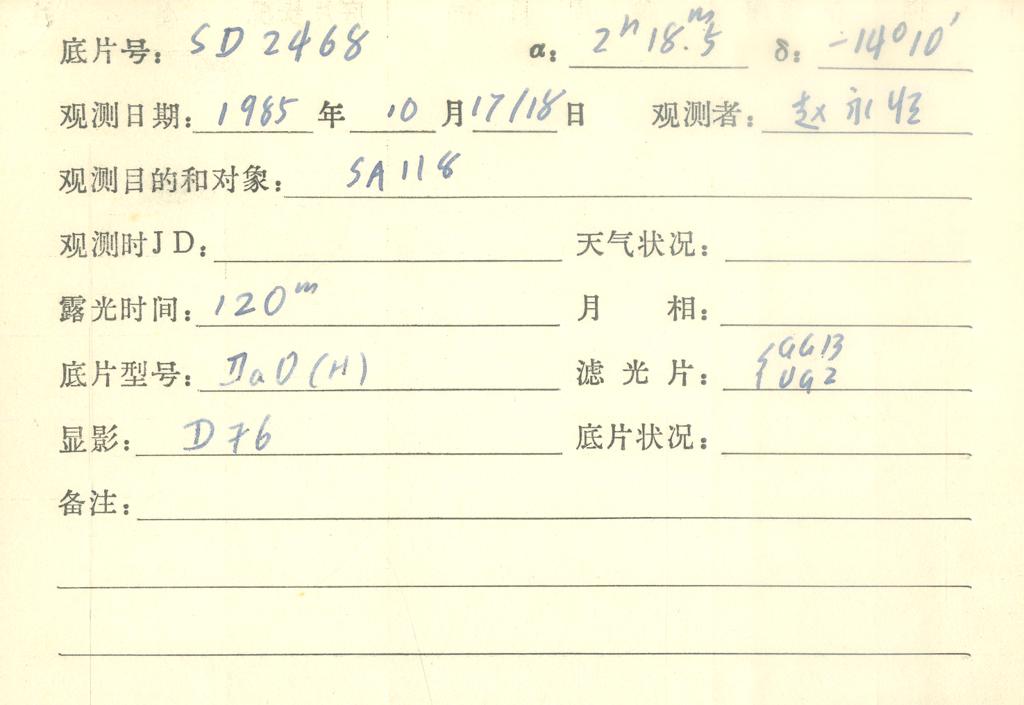 底片号: SD2468 α: 2ʰ18.ᵐ5 δ: -14°10′
观测日期: 1985 年 10 月 17/18 日 观测者: 赵永恒
观测目的和对象: SA118
观测时JD: 天气状况:
露光时间: 120ᵐ 月 相:
底片型号: IIaO(H) 滤光片: { GG13
UG2
显影: D76 底片状况:
备注: